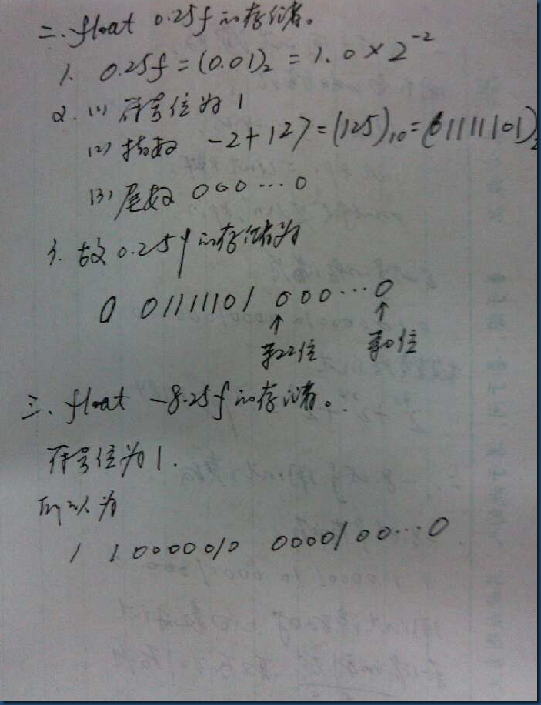 二、float 0.25f 的存储。
1. 0.25f = (0.01)₂ = 1.0 × 2⁻²
2. (1) 符号位为 1
(2) 指数 -2 + 127 = (125)₁₀ = (01111101)₂
(3) 尾数 000…0
3. 故 0.25f 的存储为
0 01111101 000…0
↑ ↑
第22位 第0位
三、float -8.25f 的存储。
符号位为 1.
所以为
1 10000010 0000100…0